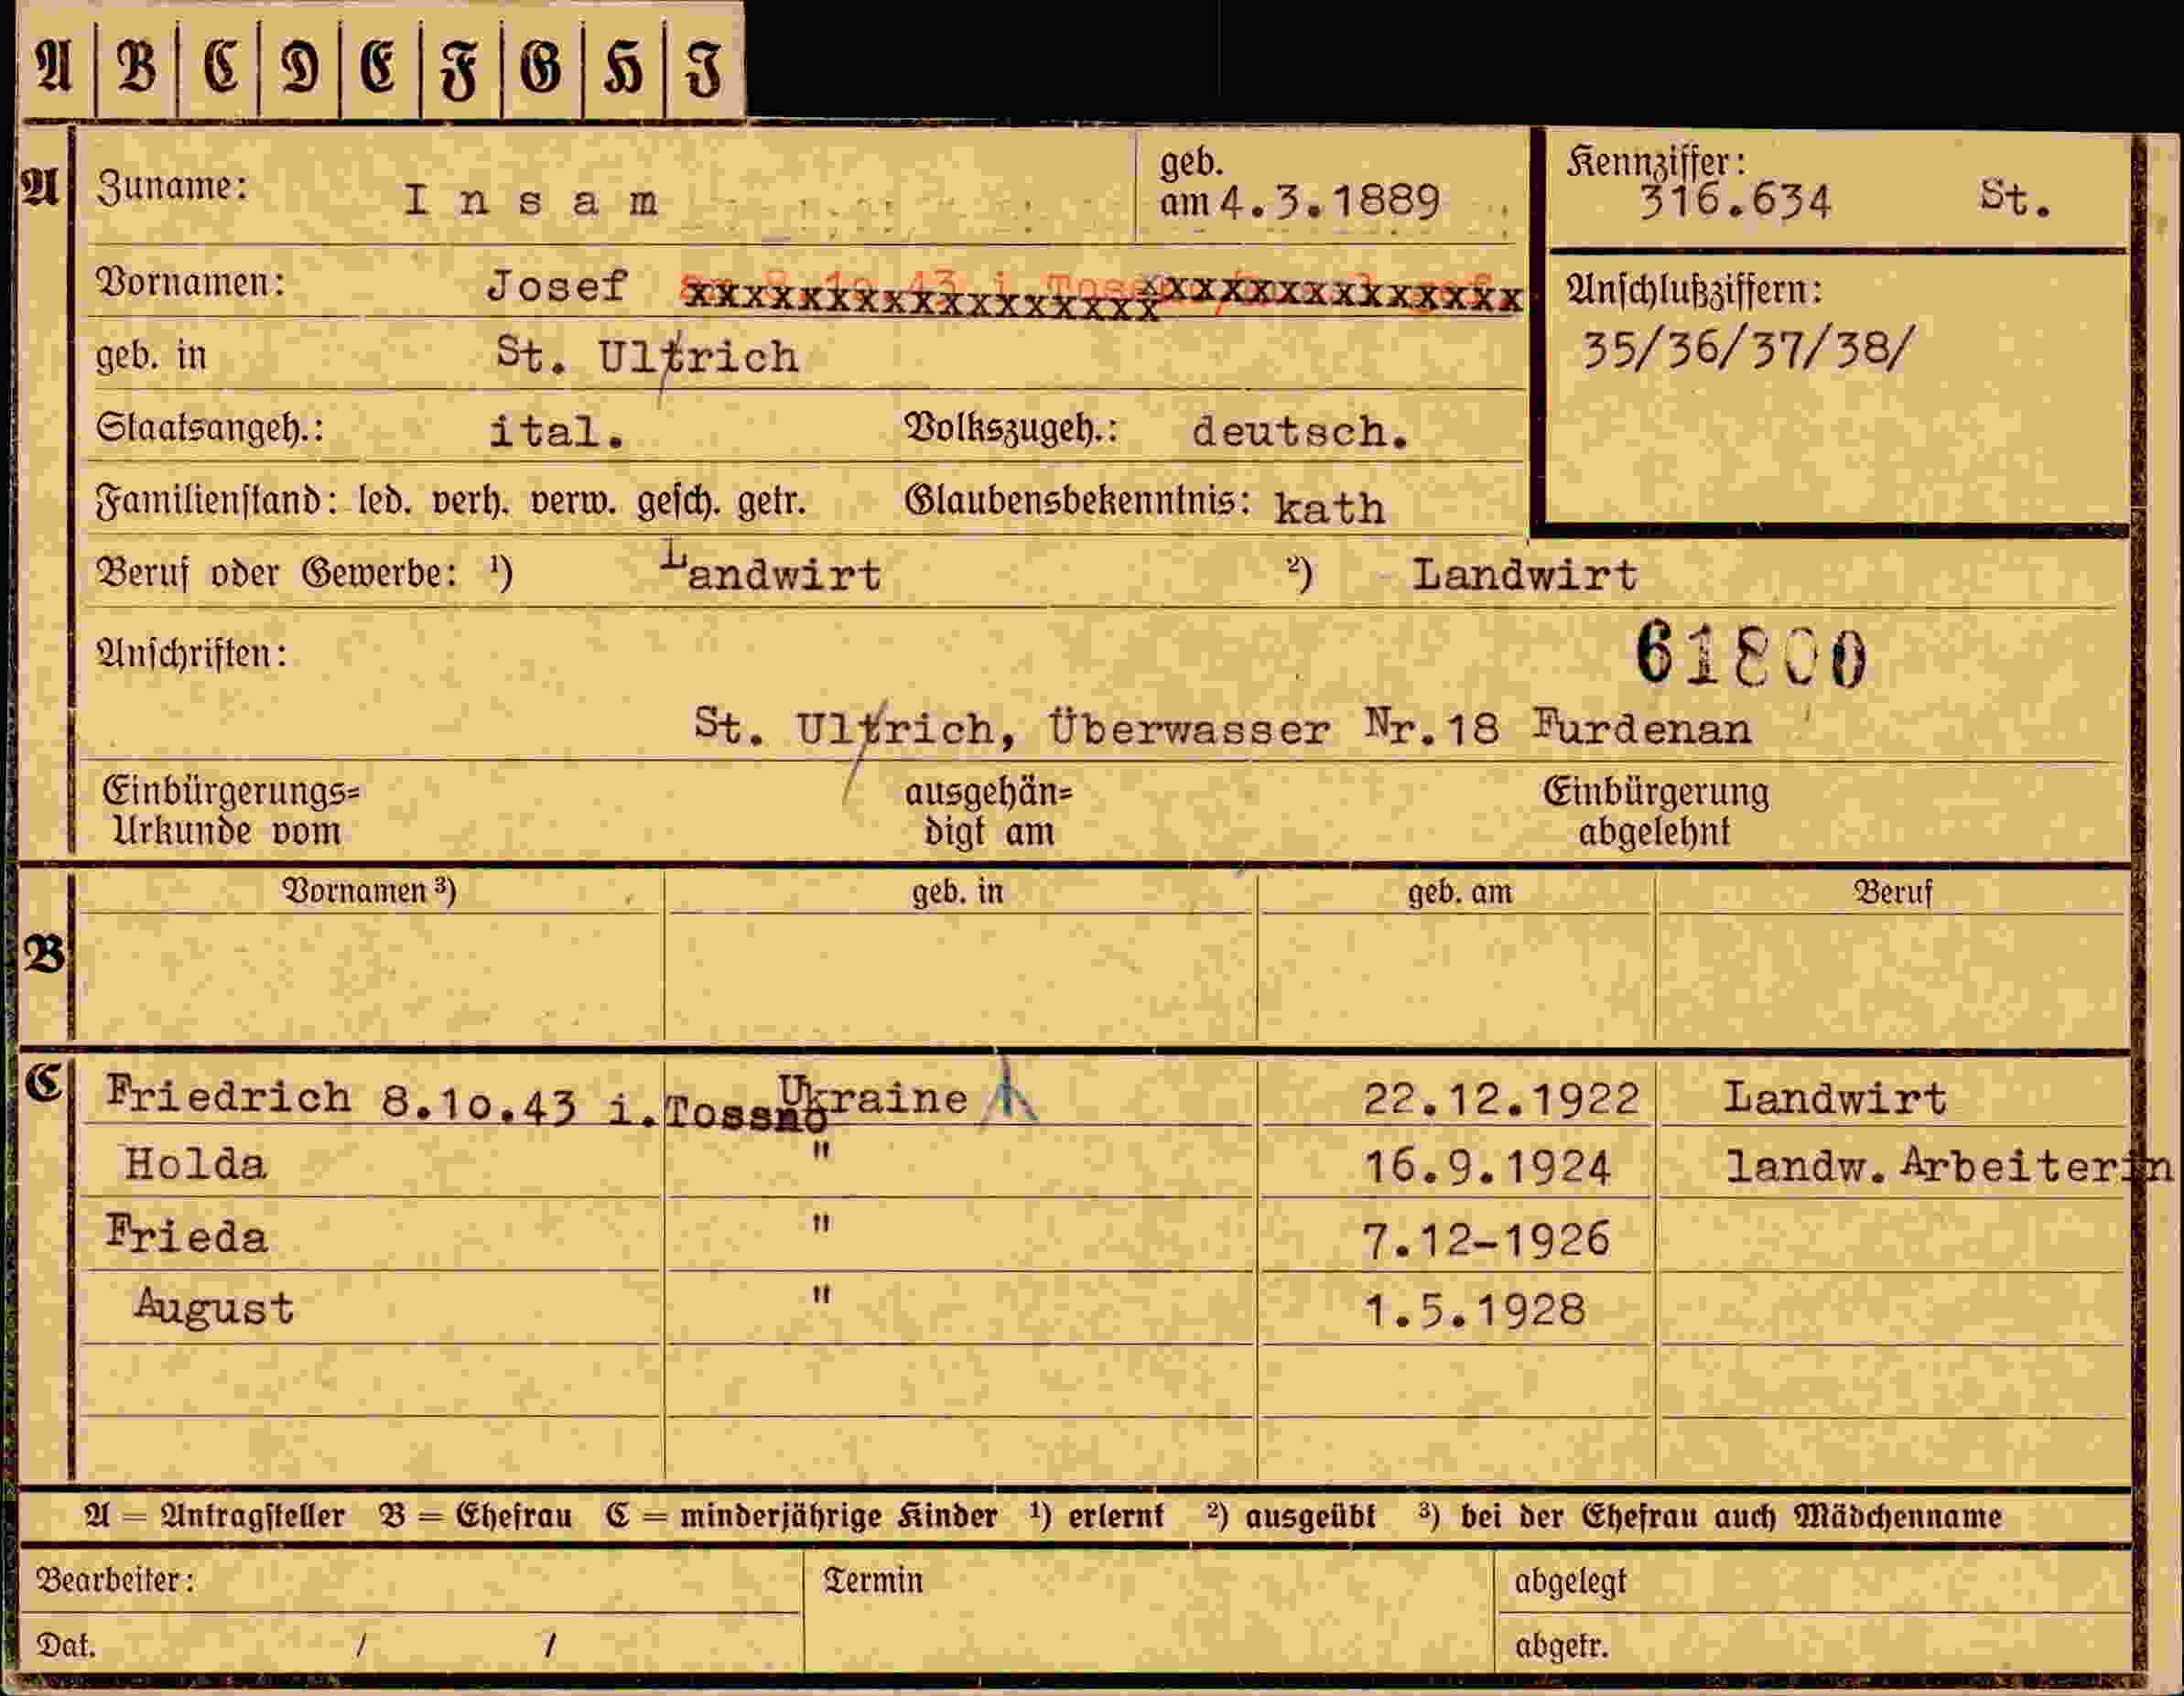 A B C D E F G H I
A Zuname: Insam geb. am 4.3.1889 Kennziffer: 316.634 St.
Vornamen: Josef xxxxxxxxxxxxxxxxxxxxxxxxxxxxxx Anschlußziffern:
35/36/37/38/
geb. in St. Ultrich
Staatsangeh.: ital. Volkszugeh.: deutsch.
Familienstand: led. verh. verw. gesch. getr. Glaubensbekenntnis: kath
Beruf oder Gewerbe: ¹) Landwirt ²) Landwirt
Anschriften: 61800
St. Ultrich, Überwasser Nr.18 Furdenan
Einbürgerungs= Urkunde vom ausgehän= digt am Einbürgerung abgelehnt
B Vornamen ³) geb. in geb. am Beruf
C Friedrich 8.10.43 i.Tossno Ukraine 22.12.1922 Landwirt
Holda " 16.9.1924 landw. Arbeiterin
Frieda " 7.12-1926
August " 1.5.1928
A = Antragsteller B = Ehefrau C = minderjährige Kinder ¹) erlernt ²) ausgeübt ³) bei der Ehefrau auch Mädchenname
Bearbeiter: Termin abgelegt
Dat. / / abgetr.